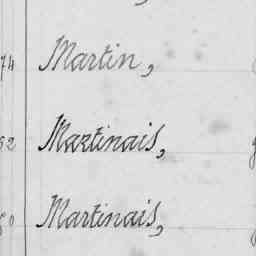 74 Martin,
52 Martinais,
50 Martinais,